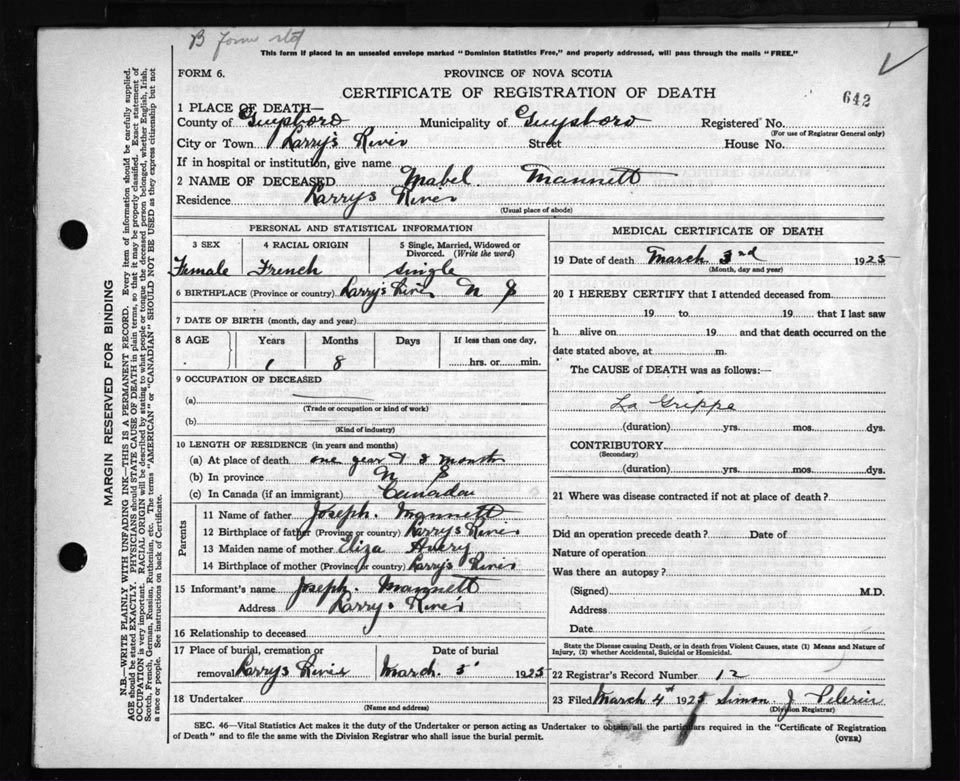 B form
This form if placed in an unsealed envelope marked "Dominion Statistics Free," and properly addressed, will pass through the mails "FREE."
FORM 6.
PROVINCE OF NOVA SCOTIA
CERTIFICATE OF REGISTRATION OF DEATH
642
1 PLACE OF DEATH—
County of Guysboro Municipality of Guysboro Registered No.
(For use of Registrar General only)
City or Town Larry's River Street House No.
If in hospital or institution, give name
2 NAME OF DECEASED Mabel Mannett
Residence Larrys River
(Usual place of abode)
PERSONAL AND STATISTICAL INFORMATION
3 SEX 4 RACIAL ORIGIN 5 Single, Married, Widowed or Divorced. (Write the word)
Female French Single
6 BIRTHPLACE (Province or country) Larry's River N S
7 DATE OF BIRTH (month, day and year)
8 AGE Years Months Days If less than one day,
1 8 hrs. or min.
9 OCCUPATION OF DECEASED
(a)
(Trade or occupation or kind of work)
(b)
(Kind of industry)
10 LENGTH OF RESIDENCE (in years and months)
(a) At place of death one year & 8 months
(b) In province N S
(c) In Canada (if an immigrant) Canadan
Parents
11 Name of father Joseph. Mannett
12 Birthplace of father (Province or country) Larrys River
13 Maiden name of mother Eliza Avery
14 Birthplace of mother (Province or country) Larrys River
15 Informant's name Joseph. Mannett
Address Larrys River
16 Relationship to deceased
17 Place of burial, cremation or removal Larrys River
Date of burial March. 5 1925
18 Undertaker
(Name and address)
MEDICAL CERTIFICATE OF DEATH
19 Date of death March 3rd 1925
(Month, day and year)
20 I HEREBY CERTIFY that I attended deceased from
19 to 19 that I last saw
h alive on 19 and that death occurred on the
date stated above, at m.
The CAUSE of DEATH was as follows:—
La Grippe
(duration) yrs. mos. dys.
CONTRIBUTORY
(Secondary)
(duration) yrs. mos. dys.
21 Where was disease contracted if not at place of death?
Did an operation precede death? Date of
Nature of operation
Was there an autopsy?
(Signed) M.D.
Address
Date
State the Disease causing Death, or in death from Violent Causes, state (1) Means and Nature of
Injury, (2) whether Accidental, Suicidal or Homicidal.
22 Registrar's Record Number 12
23 Filed March 4th 1925 Simon J Pelerin
(Division Registrar)
SEC. 46—Vital Statistics Act makes it the duty of the Undertaker or person acting as Undertaker to obtain all the particulars required in the "Certificate of Registration
of Death" and to file the same with the Division Registrar who shall issue the burial permit.
(OVER)
MARGIN RESERVED FOR BINDING
N.B.—WRITE PLAINLY WITH UNFADING INK—THIS IS A PERMANENT RECORD. Every item of information should be carefully supplied.
AGE should be stated EXACTLY. PHYSICIANS should STATE CAUSE OF DEATH in plain terms, so that it may be properly classified. Exact statement of
OCCUPATION is very important. RACIAL ORIGIN will be described by stating to what people or tongue the deceased person belonged, whether English, Irish,
Scotch, French, German, Russian, Ruthenian, etc. The terms "AMERICAN" or "CANADIAN" SHOULD NOT BE USED as they express citizenship but not
a race or people. See instructions on back of Certificate.